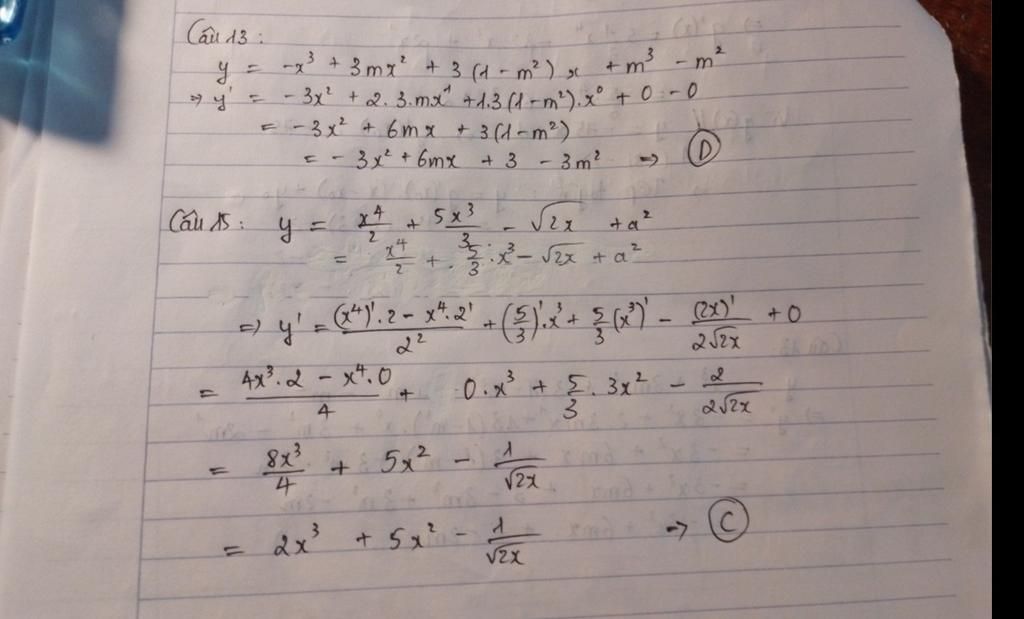 Câu 13 :
y = -x³ + 3mx² + 3 (1 - m²) x + m³ - m²
⇒ y' = - 3x² + 2. 3. mx¹ + 1.3 (1 - m²). x⁰ + 0 - 0
= - 3x² + 6mx + 3 (1 - m²)
= - 3x² + 6mx + 3 - 3m² → D
Câu 15 : y = x⁴/2 + 5x³/3 - √2x + a²
= x⁴/2 + . 5/3 . x³ - √2x + a²
⇒ y' = ((x⁴)' . 2 - x⁴ . 2')/2² + (5/3)' . x³ + 5/3 (x³)' - (2x)'/2√2x + 0
= (4x³ . 2 - x⁴ . 0)/4 + 0 . x³ + 5/3 . 3x² - 2/2√2x
= 8x³/4 + 5x² - 1/√2x
= 2x³ + 5x² - 1/√2x → C